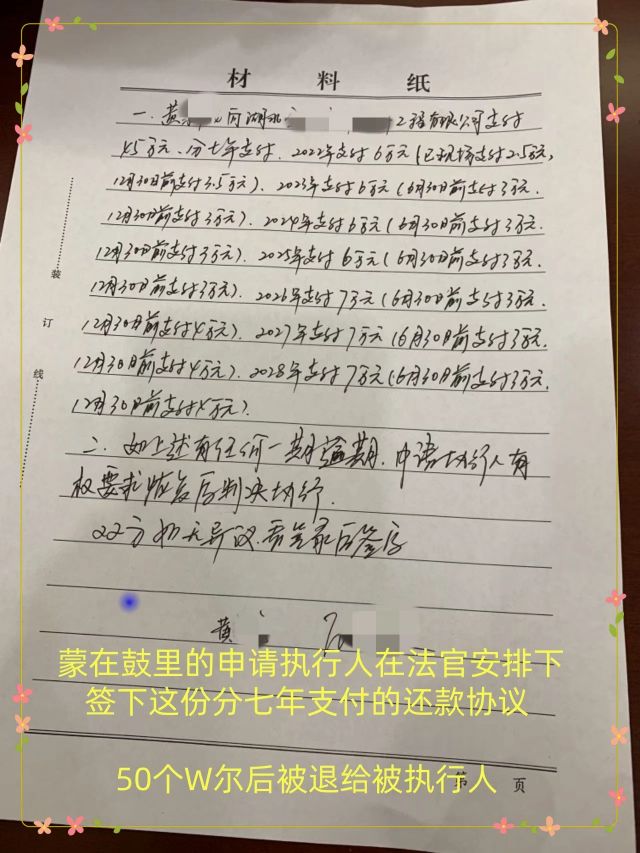 材料纸
一、黄 向湖北 工程有限公司支付
45万元、分七年支付、2022年支付6万元(已现场支付2.5万元,
12月30日前支付3.5万元)、2023年支付6万元(6月30日前支付3万元.
12月30日前支付3万元)、2024年支付6万元(6月30日前支付3万元.
12月30日前支付3万元)、2025年支付6万元(6月30日前支付3万元.
12月30日前支付3万元)、2026年支付7万元(6月30日前支付3万元.
12月30日前支付4万元)、2027年支付7万元(6月30日前支付3万元.
12月30日前支付4万元)、2028年支付7万元(6月30日前支付3万元.
12月30日前支付4万元).
二、如上述有任何一期逾期.申请执行人有
权要求恢复原判决执行.
双方如无异议.看笔录后签字
黄
装
订
线
蒙在鼓里的申请执行人在法官安排下
签下这份分七年支付的还款协议
50个W尔后被退给被执行人
第 页